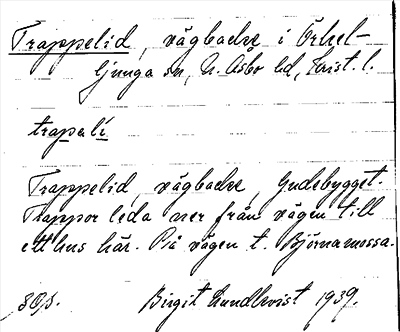 Trappelid, vägbacke i Örkel-
ljunga sn, N. Åsbo hd, Krist. l.
trapalí
Trappelid, vägbacke, Gudebygget.
Trappor leda ner från vägen till
ett hus här. På vägen t. Björnamossa.
Birgit Lundkvist 1939.